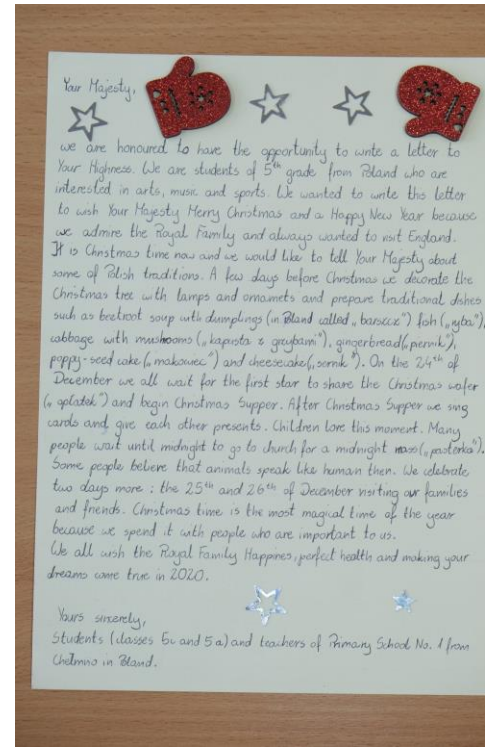 Your Majesty,
we are honoured to have the opportunity to write a letter to
Your Highness. We are students of 5th grade from Poland who are
interested in arts, music and sports. We wanted to write this letter
to wish Your Majesty Merry Christmas and a Happy New Year because
we admire the Royal Family and always wanted to visit England.
It is Christmas time now and we would like to tell Your Majesty about
some of Polish traditions. A few days before Christmas we decorate the
Christmas tree with lamps and ornamets and prepare traditional dishes
such as beetroot soup with dumplings (in Poland called „barszcz") fish („ryba"),
cabbage with mushrooms („kapusta z grzybami"), gingerbread („piernik"),
poppy-seed cake („makowiec") and cheesecake („sernik"). On the 24th of
December we all wait for the first star to share the Christmas wafer
(„opłatek") and begin Christmas Supper. After Christmas Supper we sing
carols and give each other presents. Children love this moment. Many
people wait until midnight to go to church for a midnight mass („pasterka").
Some people believe that animals speak like human then. We celebrate
two days more: the 25th and 26th of December visiting our families
and friends. Christmas time is the most magical time of the year
because we spend it with people who are important to us.
We all wish the Royal Family Happines, perfect health and making your
dreams come true in 2020.
Yours sincerely,
Students (classes 5c and 5a) and teachers of Primary School No. 1 from
Chełmno in Poland.